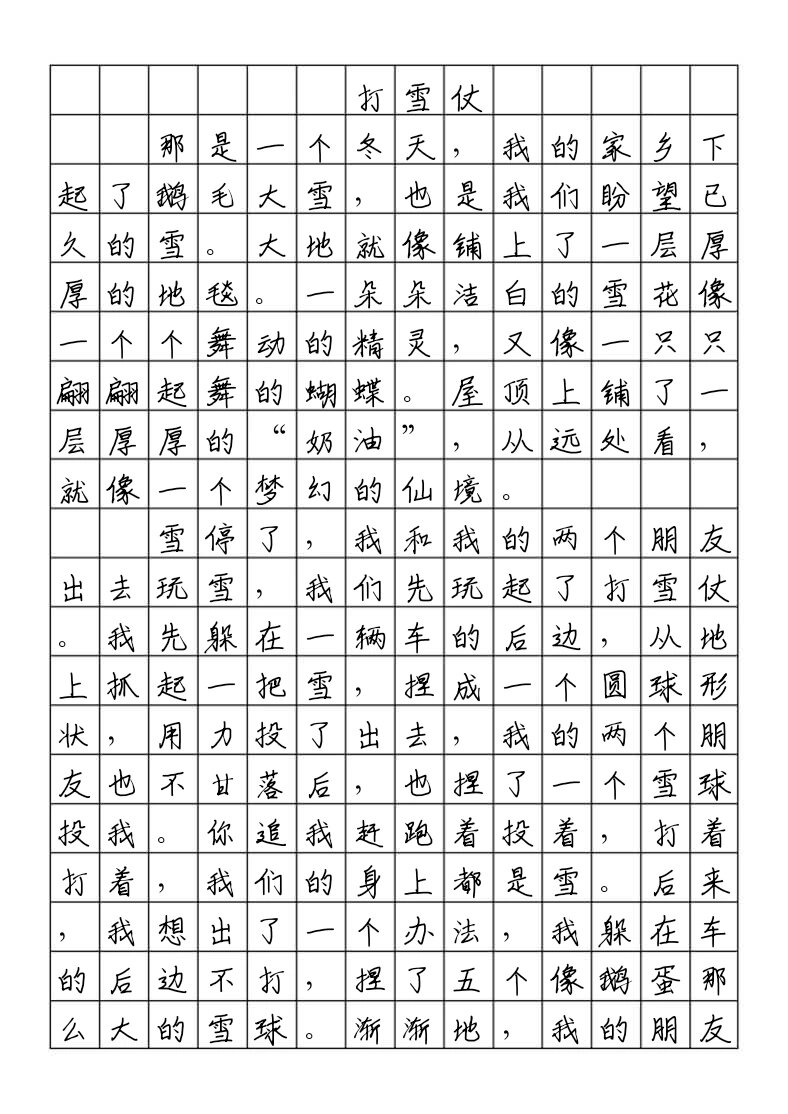 打雪仗
那是一个冬天，我的家乡下
起了鹅毛大雪，也是我们盼望已
久的雪。大地就像铺上了一层厚
厚的地毯。一朵朵洁白的雪花像
一个个舞动的精灵，又像一只只
翩翩起舞的蝴蝶。屋顶上铺了一
层厚厚的“奶油”，从远处看，
就像一个梦幻的仙境。
雪停了，我和我的两个朋友
出去玩雪，我们先玩起了打雪仗
。我先躲在一辆车的后边，从地
上抓起一把雪，捏成一个圆球形
状，用力投了出去，我的两个朋
友也不甘落后，也捏了一个雪球
投我。你追我赶跑着投着，打着
打着，我们的身上都是雪。后来
，我想出了一个办法，我躲在车
的后边不打，捏了五个像鹅蛋那
么大的雪球。渐渐地，我的朋友